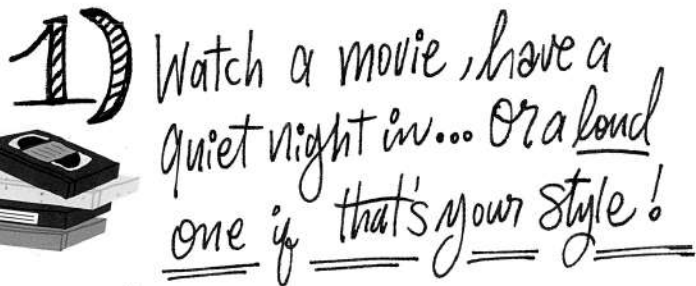 1) Watch a movie, have a
quiet night in... Or a loud
one if that's your style!